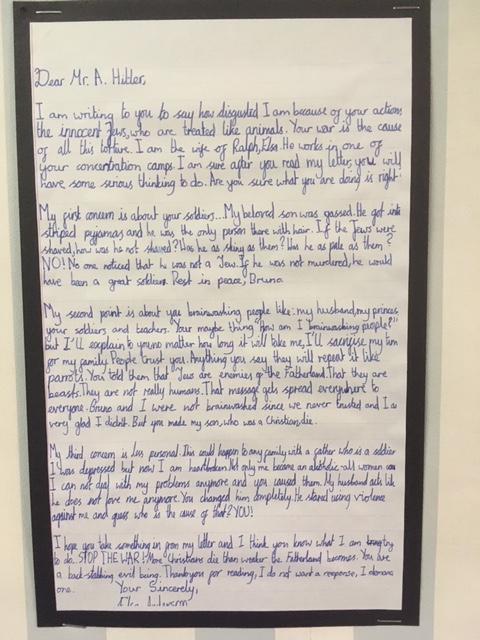 Dear Mr. A. Hitler,
I am writing to you to say how disgusted I am because of your actions
the innocent Jews, who are treated like animals. Your war is the cause
of all this torture. I am the wife of Ralph, Elsa. He works in one of
your concentration camps. I am sure after you read my letter, you will
have some serious thinking to do. Are you sure what you are doing is right
My first concern is about your soldiers... My beloved son was gassed. He got into
striped pyjamas and he was the only person there with hair. If the Jews were
shaved, how was he not shaved? Was he as skiny as them? Was he pale as them?
NO! No one noticed that he was not a Jew. If he was not murdered, he would
have been a great soldier. Rest in peace, Bruno.
My second point is about you brainwashing people like: my husband, my princess,
your soldiers and teachers. Your maybe thing "How am I brainwashing people?"
but I'll explain to you no matter how long it will take me, I'll sacrifise my time
for my family. People trust you. Anything you say they will repeat it like
parrots. You told them that Jews are enemies of the Fatherland. That they are
beasts. They are not really humans. That message gets spread everywhere to
everyone. Bruno and I were not brainwashed since we never trusted and I am
very glad I didn't. But you made my son, who was a Christian, die.
My third concern is less personal. This could happen to any family with a father who is a soldier
I was depressed but now I am heartbroken. Not only me became an alcoholic - all women
I can not deal with my problems anymore and you caused them. My husband acts like
he does not love me anymore. You changed him completely. He stared using violence
against me and guess who is the cause of that? YOU!
I hope you take something in from my letter and I think you know what I am trying
to do. STOP THE WAR! More Christians die than weaker the Fatherland becomes. You are
a back-stabbing evil being. Thankyou for reading, I do not want a response, I
one.
Your Sincerely,